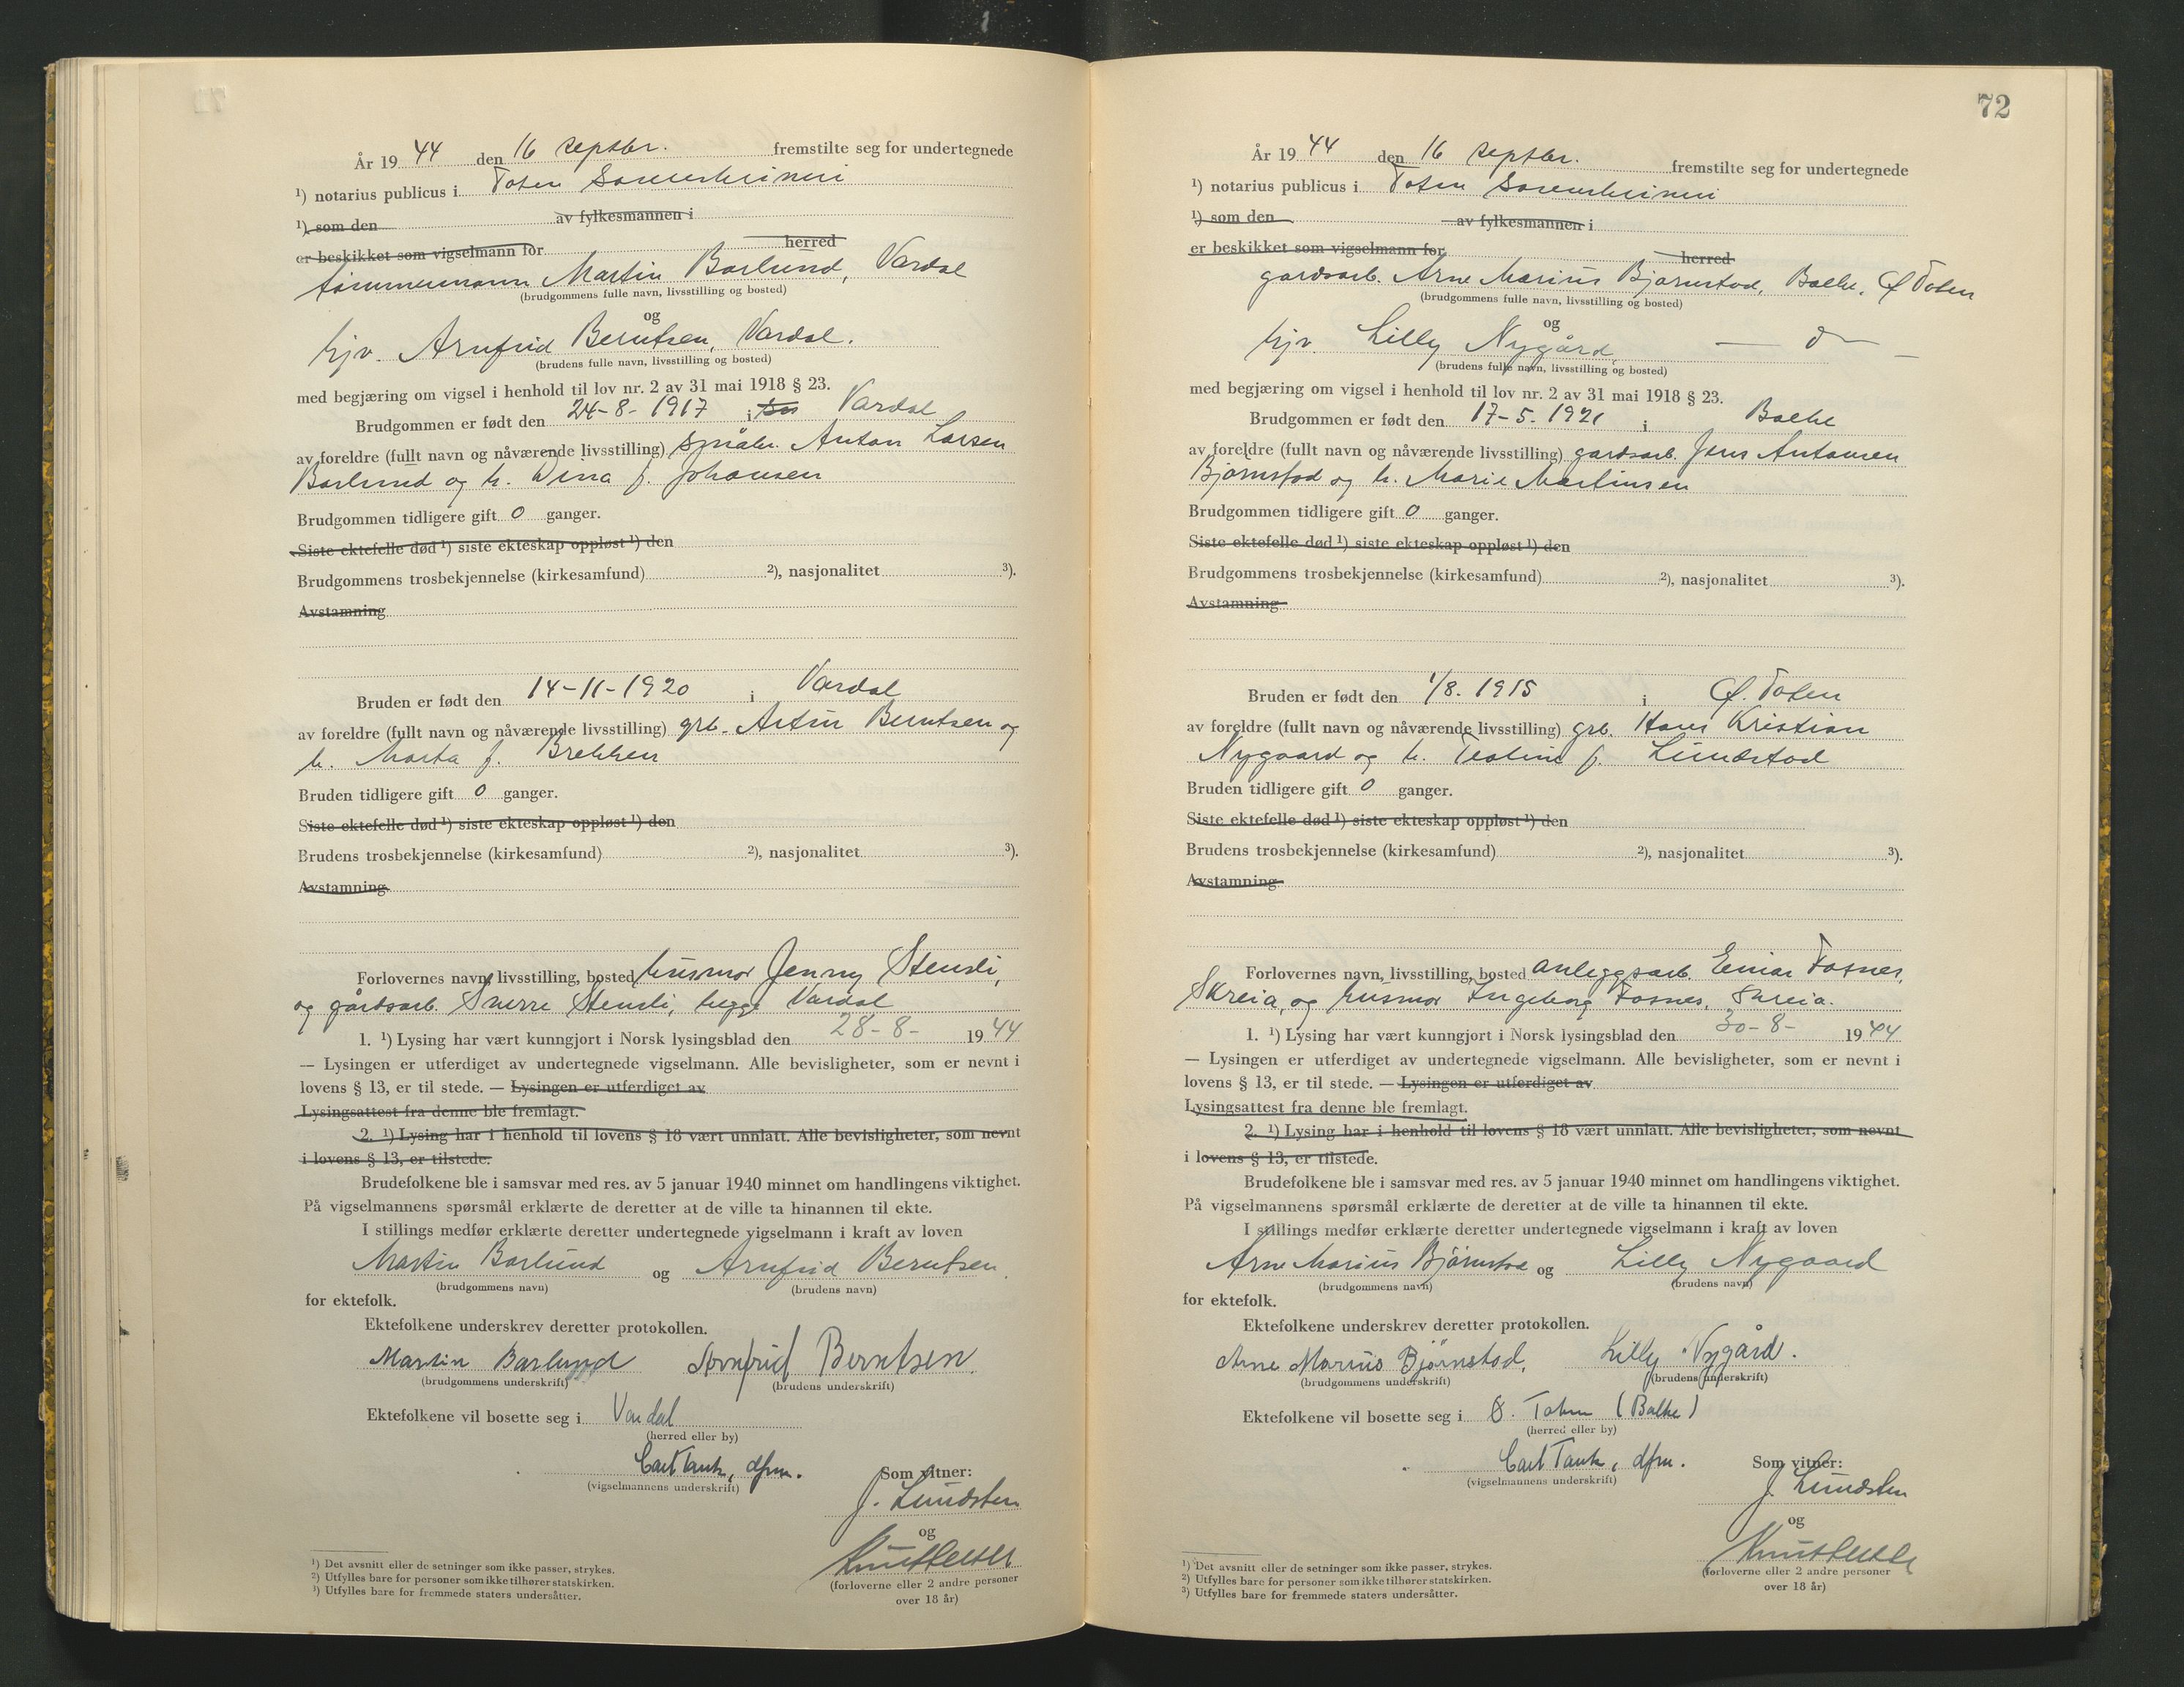 År 19 44 den 16 septbr. fremstilte seg for undertegnede
¹) notarius publicus i Toten Sorenskriveri
¹) som den av fylkesmannen i
er beskikket som vigselmann for herred
tømmermann Martin Barlund, Vardal
(brudgommens fulle navn, livsstilling og bosted)
og
hjv. Arnfrid Berntsen, Vardal.
(brudens fulle navn, livsstilling og bosted)
med begjæring om vigsel i henhold til lov nr. 2 av 31 mai 1918 § 23.
Brudgommen er født den 24-8-1917 i Vardal
av foreldre (fullt navn og nåværende livsstilling) småbr. Anton Larsen
Barlund og h. Dina f. Johansen
Brudgommen tidligere gift 0 ganger.
Siste ektefelle død ¹) siste ekteskap oppløst ¹) den
Brudgommens trosbekjennelse (kirkesamfund) ²), nasjonalitet ³).
Avstamning
Bruden er født den 14-11-1920 i Vardal
av foreldre (fullt navn og nåværende livsstilling) grb. Artur Berntsen og
h. Marta f. Brekken
Bruden tidligere gift 0 ganger.
Siste ektefelle død ¹) siste ekteskap oppløst ¹) den
Brudens trosbekjennelse (kirkesamfund) ²), nasjonalitet ³).
Avstamning
Forlovernes navn, livsstilling, bosted husmor Jenny Stensli,
og gårdsarb. Sverre Stensli, begge Vardal
1. ¹) Lysing har vært kunngjort i Norsk lysingsblad den 28-8- 19 44
— Lysingen er utferdiget av undertegnede vigselmann. Alle bevisligheter, som er nevnt i
lovens § 13, er til stede. — Lysingen er utferdiget av
Lysingsattest fra denne ble fremlagt.
2. ¹) Lysing har i henhold til lovens § 18 vært unnlatt. Alle bevisligheter, som nevnt
i lovens § 13, er tilstede.
Brudefolkene ble i samsvar med res. av 5 januar 1940 minnet om handlingens viktighet.
På vigselmannens spørsmål erklærte de deretter at de ville ta hinannen til ekte.
I stillings medfør erklærte deretter undertegnede vigselmann i kraft av loven
Martin Barlund og Arnfrid Berntsen.
(brudgommens navn) (brudens navn)
for ektefolk.
Ektefolkene underskrev deretter protokollen.
Martin Barlund Arnfrid Berntsen.
(brudgommens underskrift) (brudens underskrift)
Ektefolkene vil bosette seg i Vardal
(herred eller by)
Carl Tank, dfm.
(vigselmannens underskrift)
Som vitner:
J. Lundsten
og
(forloverne eller 2 andre personer
over 18 år)
¹) Det avsnitt eller de setninger som ikke passer, strykes.
²) Utfylles bare for personer som ikke tilhører statskirken.
³) Utfylles bare for fremmede staters undersåtter.
72
År 19 44 den 16 septbr. fremstilte seg for undertegnede
¹) notarius publicus i Toten Sorenskriveri
¹) som den av fylkesmannen i
er beskikket som vigselmann for herred
gardsarb. Arne Marius Bjørnstad, Balke, Ø. Toten
(brudgommens fulle navn, livsstilling og bosted)
og
hjv. Lilly Nygård, — d —
(brudens fulle navn, livsstilling og bosted)
med begjæring om vigsel i henhold til lov nr. 2 av 31 mai 1918 § 23.
Brudgommen er født den 17-5.1921 i Balke
av foreldre (fullt navn og nåværende livsstilling) gardsarb. Jens Antonsen
Bjørnstad og h. Marie Martinsen
Brudgommen tidligere gift 0 ganger.
Siste ektefelle død ¹) siste ekteskap oppløst ¹) den
Brudgommens trosbekjennelse (kirkesamfund) ²), nasjonalitet ³).
Avstamning
Bruden er født den 1/8. 1915 i Ø. Toten
av foreldre (fullt navn og nåværende livsstilling) grb. Hans Kristian
Nygaard og h. Teoline f. Lundstad
Bruden tidligere gift 0 ganger.
Siste ektefelle død ¹) siste ekteskap oppløst ¹) den
Brudens trosbekjennelse (kirkesamfund) ²), nasjonalitet ³).
Avstamning
Forlovernes navn, livsstilling, bosted anleggsarb. Einar Fosnes,
Skreia, og husmor Ingeborg Fosnes, Skreia.
1. ¹) Lysing har vært kunngjort i Norsk lysingsblad den 30-8- 19 44
— Lysingen er utferdiget av undertegnede vigselmann. Alle bevisligheter, som er nevnt i
lovens § 13, er til stede. — Lysingen er utferdiget av
Lysingsattest fra denne ble fremlagt.
2. ¹) Lysing har i henhold til lovens § 18 vært unnlatt. Alle bevisligheter, som nevnt
i lovens § 13, er tilstede.
Brudefolkene ble i samsvar med res. av 5 januar 1940 minnet om handlingens viktighet.
På vigselmannens spørsmål erklærte de deretter at de ville ta hinannen til ekte.
I stillings medfør erklærte deretter undertegnede vigselmann i kraft av loven
Arne Marius Bjørnstad og Lilly Nygaard
(brudgommens navn) (brudens navn)
for ektefolk.
Ektefolkene underskrev deretter protokollen.
Arne Marius Bjørnstad, Lilly Nygård.
(brudgommens underskrift) (brudens underskrift)
Ektefolkene vil bosette seg i Ø. Toten (Balke)
(herred eller by)
Carl Tank, dfm.
(vigselmannens underskrift)
Som vitner:
J. Lundsten
og
(forloverne eller 2 andre personer
over 18 år)
¹) Det avsnitt eller de setninger som ikke passer, strykes.
²) Utfylles bare for personer som ikke tilhører statskirken.
³) Utfylles bare for fremmede staters undersåtter.